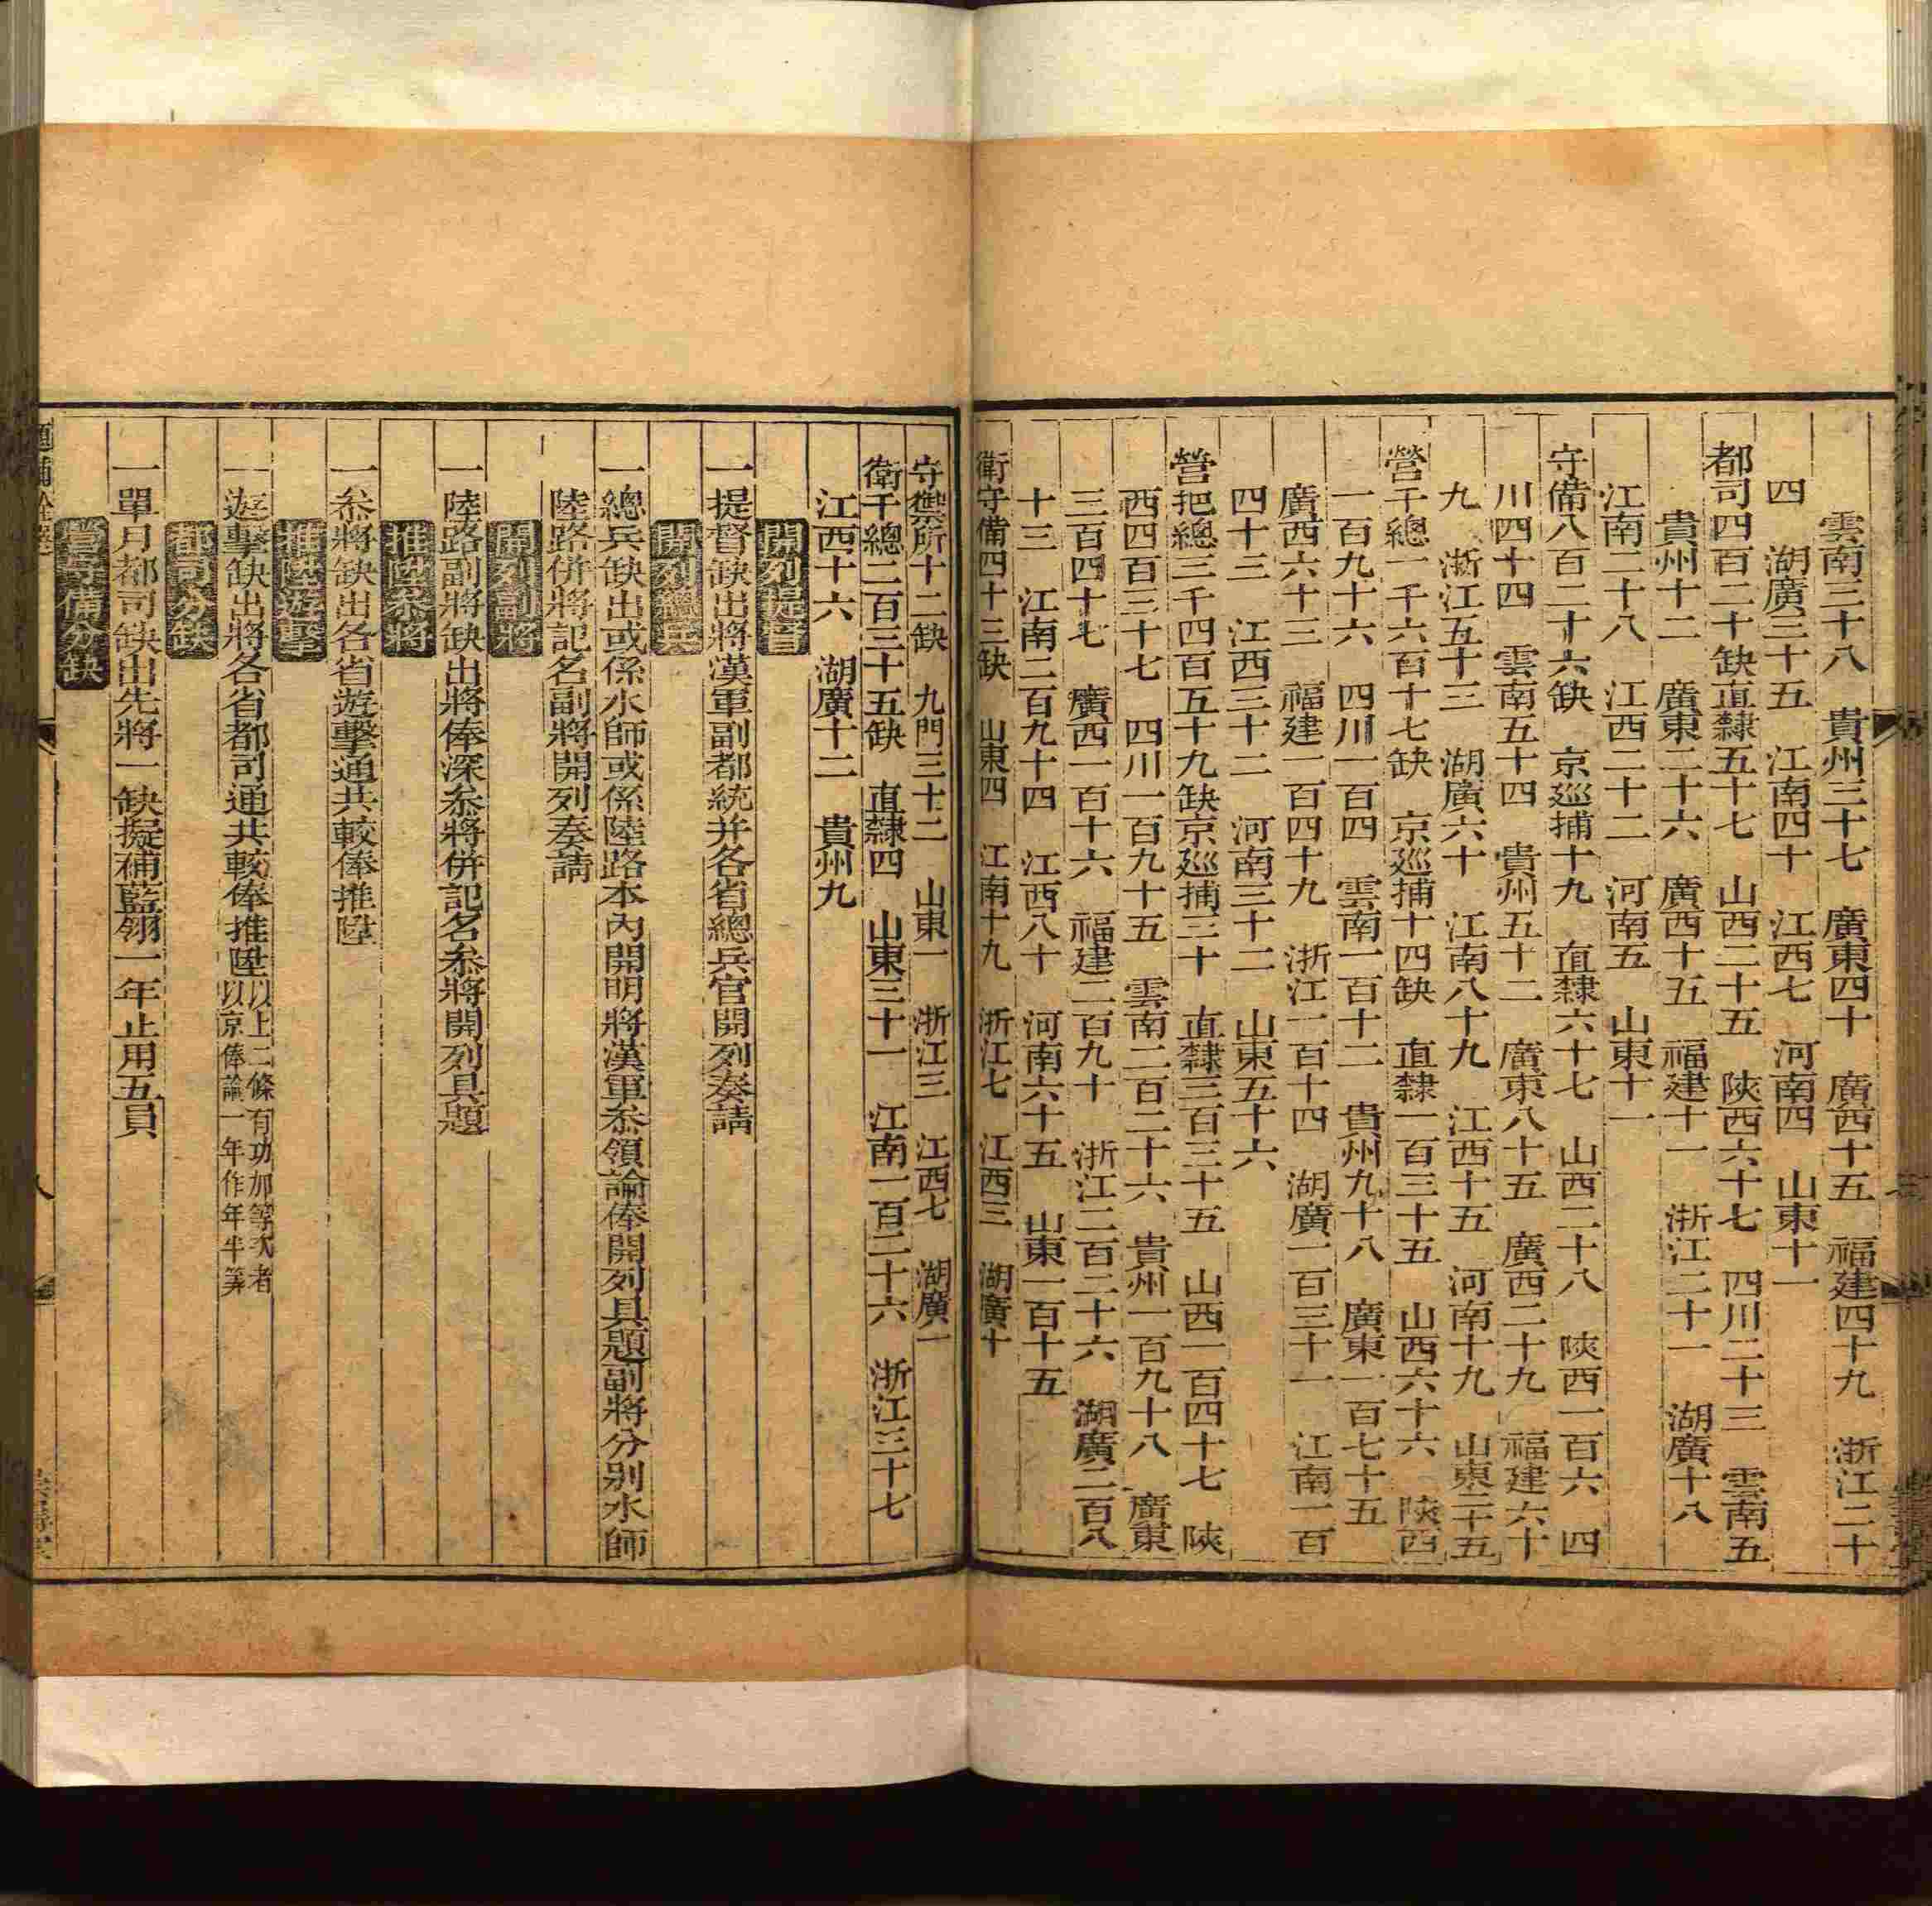 雲南三十八　貴州三十七　廣東四十　廣西十五　福建四十九　浙江二十
四　湖廣三十五　江南四十　江西七　河南四　山東十一
都司四百二十缺直隸五十七　山西二十五　陝西六十七　四川二十三　雲南五
貴州十二　廣東二十六　廣西十五　福建十一　浙江二十一　湖廣十八
江南二十八　江西二十二　河南五　山東十一
守備八百二十六缺　京廵捕十九　直隸六十七　山西二十八　陝西一百六　四
川四十四　雲南五十四　貴州五十二　廣東八十五　廣西二十九　福建六十
九　浙江五十三　湖廣六十　江南八十九　江西十五　河南十九　山東二十五
營千總一千六百十七缺　京廵捕十四缺　直隸一百三十五　山西六十六　陝西
一百九十六　四川一百四　雲南一百十二　貴州九十八　廣東一百七十五
廣西六十三　福建一百四十九　浙江一百十四　湖廣一百三十一　江南一百
四十三　江西三十二　河南三十二　山東五十六
營把總三千四百五十九缺京廵捕三十　直隸三百三十五　山西一百四十七　陝
西四百三十七　四川一百九十五　雲南二百二十六　貴州一百九十八　廣東
三百四十七　廣西一百十六　福建二百九十　浙江二百二十六　湖廣二百八
十三　江南二百九十四　江西八十　河南六十五　山東一百十五
衛守備四十三缺　山東四　江南十九　浙江七　江西三　湖廣十
守禦所十二缺　九門三十二　山東一　浙江三　江西七　湖廣一
衛千總二百三十五缺　直隸四　山東三十一　江南一百二十六　浙江三十七
江西十六　湖廣十二　貴州九
開列提督
一提督缺出將漢軍副都統并各省總兵官開列奏請
開列總兵
一總兵缺出或係水師或係陸路本內開明將漢軍叅領論俸開列具題副將分别水師
陸路併將記名副將開列奏請
開列副將
一陸路副將缺出將俸深叅將併記名叅將開列具題
推陞叅將
一叅將缺出各省遊擊通共較俸推陞
推陞遊擊
一遊擊缺出將各省都司通共較俸推陞以上二條有功加等次者
以京俸論一年作年半筭
都司分缺
一單月都司缺出先將一缺擬補藍翎一年止用五員
營守備分缺
八